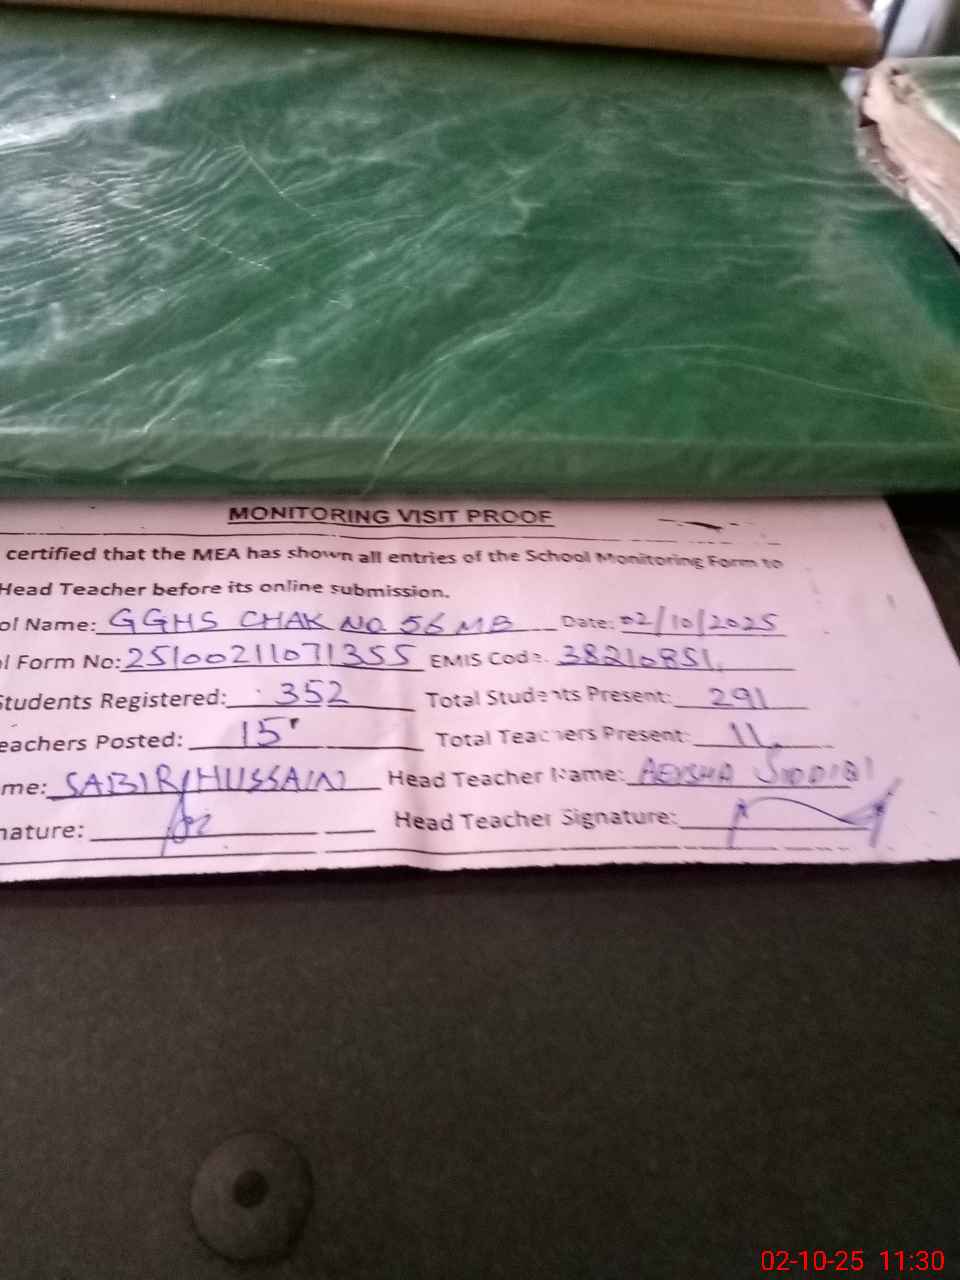 MONITORING VISIT PROOF
certified that the MEA has shown all entries of the School Monitoring Form to
Head Teacher before its online submission.
ol Name: GGHS CHAK NO 56 MB Date: 02/10/2025
l Form No: 25100211071355 EMIS Code: 38210851
Students Registered: 352 Total Students Present: 291
eachers Posted: 15 Total Teachers Present: 11
me: SABIR HUSSAIN Head Teacher Name: AEYSHA SIDDIQI
nature: Head Teacher Signature:
02-10-25 11:30